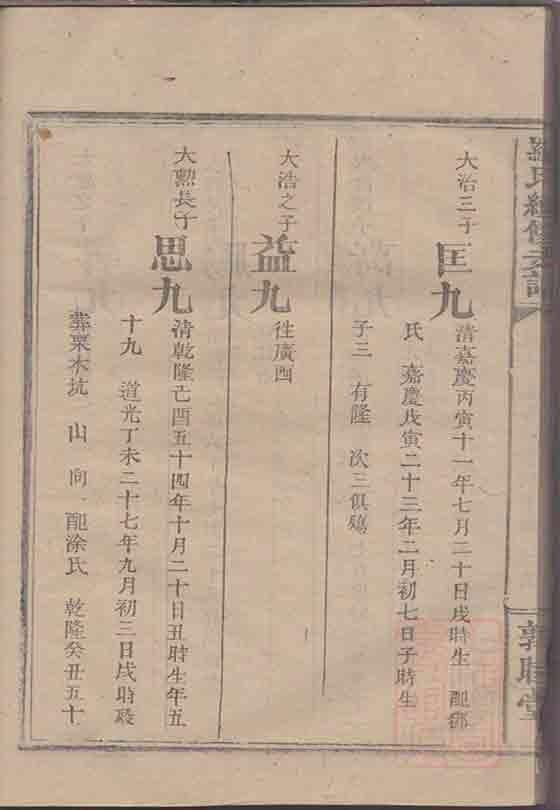 羅氏續修支譜
敦睦堂
大治三子
匡九
清嘉慶丙寅十一年七月二十日戌時生 配鄧
氏 嘉慶戊寅二十三年二月初七日子時生
子三 有隆 次三俱殤
大浩之子
益九
徃廣西
大勲長子
思九
清乾隆己酉五十四年十月二十日丑時生年五
十九 道光丁未二十七年九月初三日戌時歿
葬栗木坑 山 向 配涂氏 乾隆癸丑五十